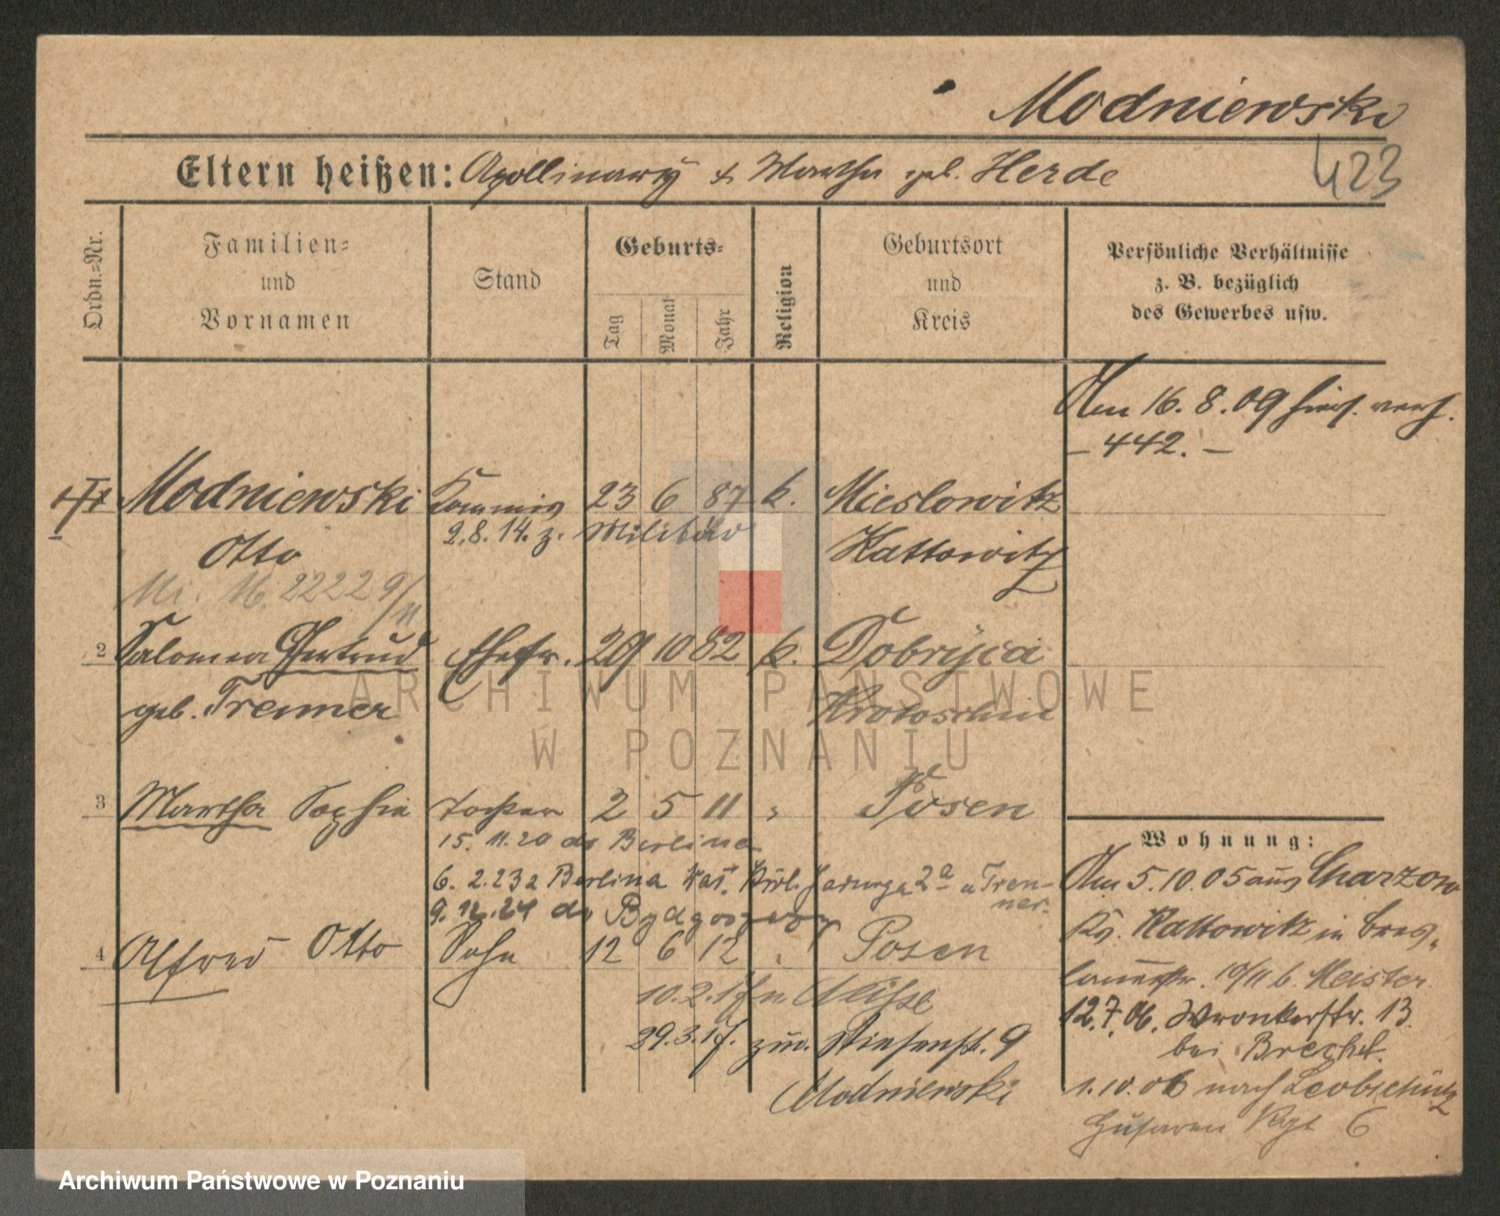 Modniewski
Eltern heißen: Apollinary & Martha geb. Herde
423
Ordn.=Nr.
Familien=
und
Vornamen
Stand
Geburts=
Tag
Monat
Jahr
Religion
Geburtsort
und
Kreis
Persönliche Verhältnisse
z. B. bezüglich
des Gewerbes usw.
Am 16. 8. 09
– 442. –
Modniewski
Otto
23 6 87 k.
2.8.14. z. Militär
Mieslowitz
Kattowitz
22229/11
2
Salomea Gertrud
geb. Trenner
Ehefr.
29 10 82 k.
Dobryca
Krotoschin
3
Martha Sophie
Tochter
2 5 11 "
Posen
15. 11. 20 do Berlina
6. 2. 23 z Berlina
ul. Trenner
9. 12. 24 do Bydgoszczy
4
Alfred Otto
Sohn
12 6 12 "
Posen
10.2.17 n. Neisse
29.3.17. zur. 9
Modniewski
Wohnung:
Am 5.10.05 aus Charzow
Kr. Kattowitz in Bres-
lauerstr. 10/11 b. Meister
12.7.06. Wronkerstr. 13
bei Brechel.
1.10.06 nach Leobschütz
Husaren Rgt 6
ARCHIWUM PAŃSTWOWE
W POZNANIU
Archiwum Państwowe w Poznaniu